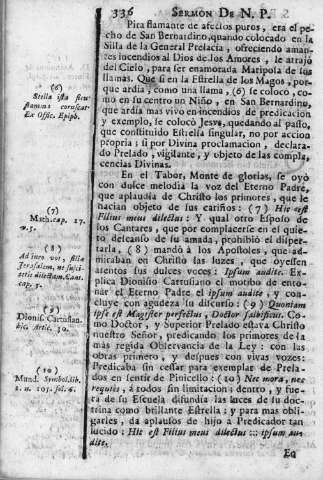 336 SERMON DE N. P.
Pira flamante de afectos puros, era el pe-
cho de San Bernardino, quando colocado en la
Silla de la General Prelacia, ofreciendo aman-
tes incendios al Dios de los Amores, le atrajò
del Cielo, para ser enamorada Mariposa de los
llamas. Que si en la Estrella de los Magos, por-
que ardia, como una llama, (6) se colocò, co-
mo en su centro un Niño, en San Bernardino,
que ardia mas vivo en incendios de predicacion
y exemplo, se colocò Jesvs, quedando al passo,
que constituido Estrella singular, no por accion
propria; si por Divina proclamacion, declara-
do Prelado, vigilante, y objeto de las compla-
cencias Divinas.
En el Tabor, Monte de glorias, se oyò
con dulce melodia la voz del Eterno Padre,
que aplaudia de Christo los primores, que le
hacian objeto de sus cariños: (7) Hic est
Filius meus dilectus: Y qual otro Esposo de
los Cantares, que por complacerse en el quie-
to descanso de su amada, prohibiò el disper-
tarla, (8) mandò à los Apostoles, que ad-
miraban en Christo las luzes, que oyessen
atentos sus dulces voces: Ipsum audite. Ex-
plica Dionisio Cartusiano el motivo de ento-
nar el Eterno Padre el ipsum audite, y con-
cluye con agudeza su discurso: (9) Quoniam
ipse est Magister perfectus, Doctor salvificus. Co-
mo Doctor, y Superior Prelado estava Christo
nuestro Señor, predicando los primores de la
mas regida Observancia de la Ley: con las
obras primero, y despues con vivas vozes:
Predicaba sin cessar para exemplar de Prela-
dos en sentir de Pinicello: (10) Nec mora, nec
requies, à todos sin limitacion: dentro, y fue-
ra de su Escuela difundia las luces de su doc-
trina como brillante Estrella; y para mas obli-
garles, da aplausos de hijo à Predicador tan
lucido: Hic est Filius meus dilectus ::: ipsum au-
dite.
En
(6)
Stella ista sicut
flamma coruscat
Ex Offic. Epiph.
(7)
Math. cap. 17.
v. 5.
(8)
Adjuro vos, filiæ
Jerusalem, ne susci-
tetis dilectam. Cant.
cap. 3.
(9)
Dionis. Cartusian.
hic. Artic. 30.
(10)
Mund. Symbol. lib.